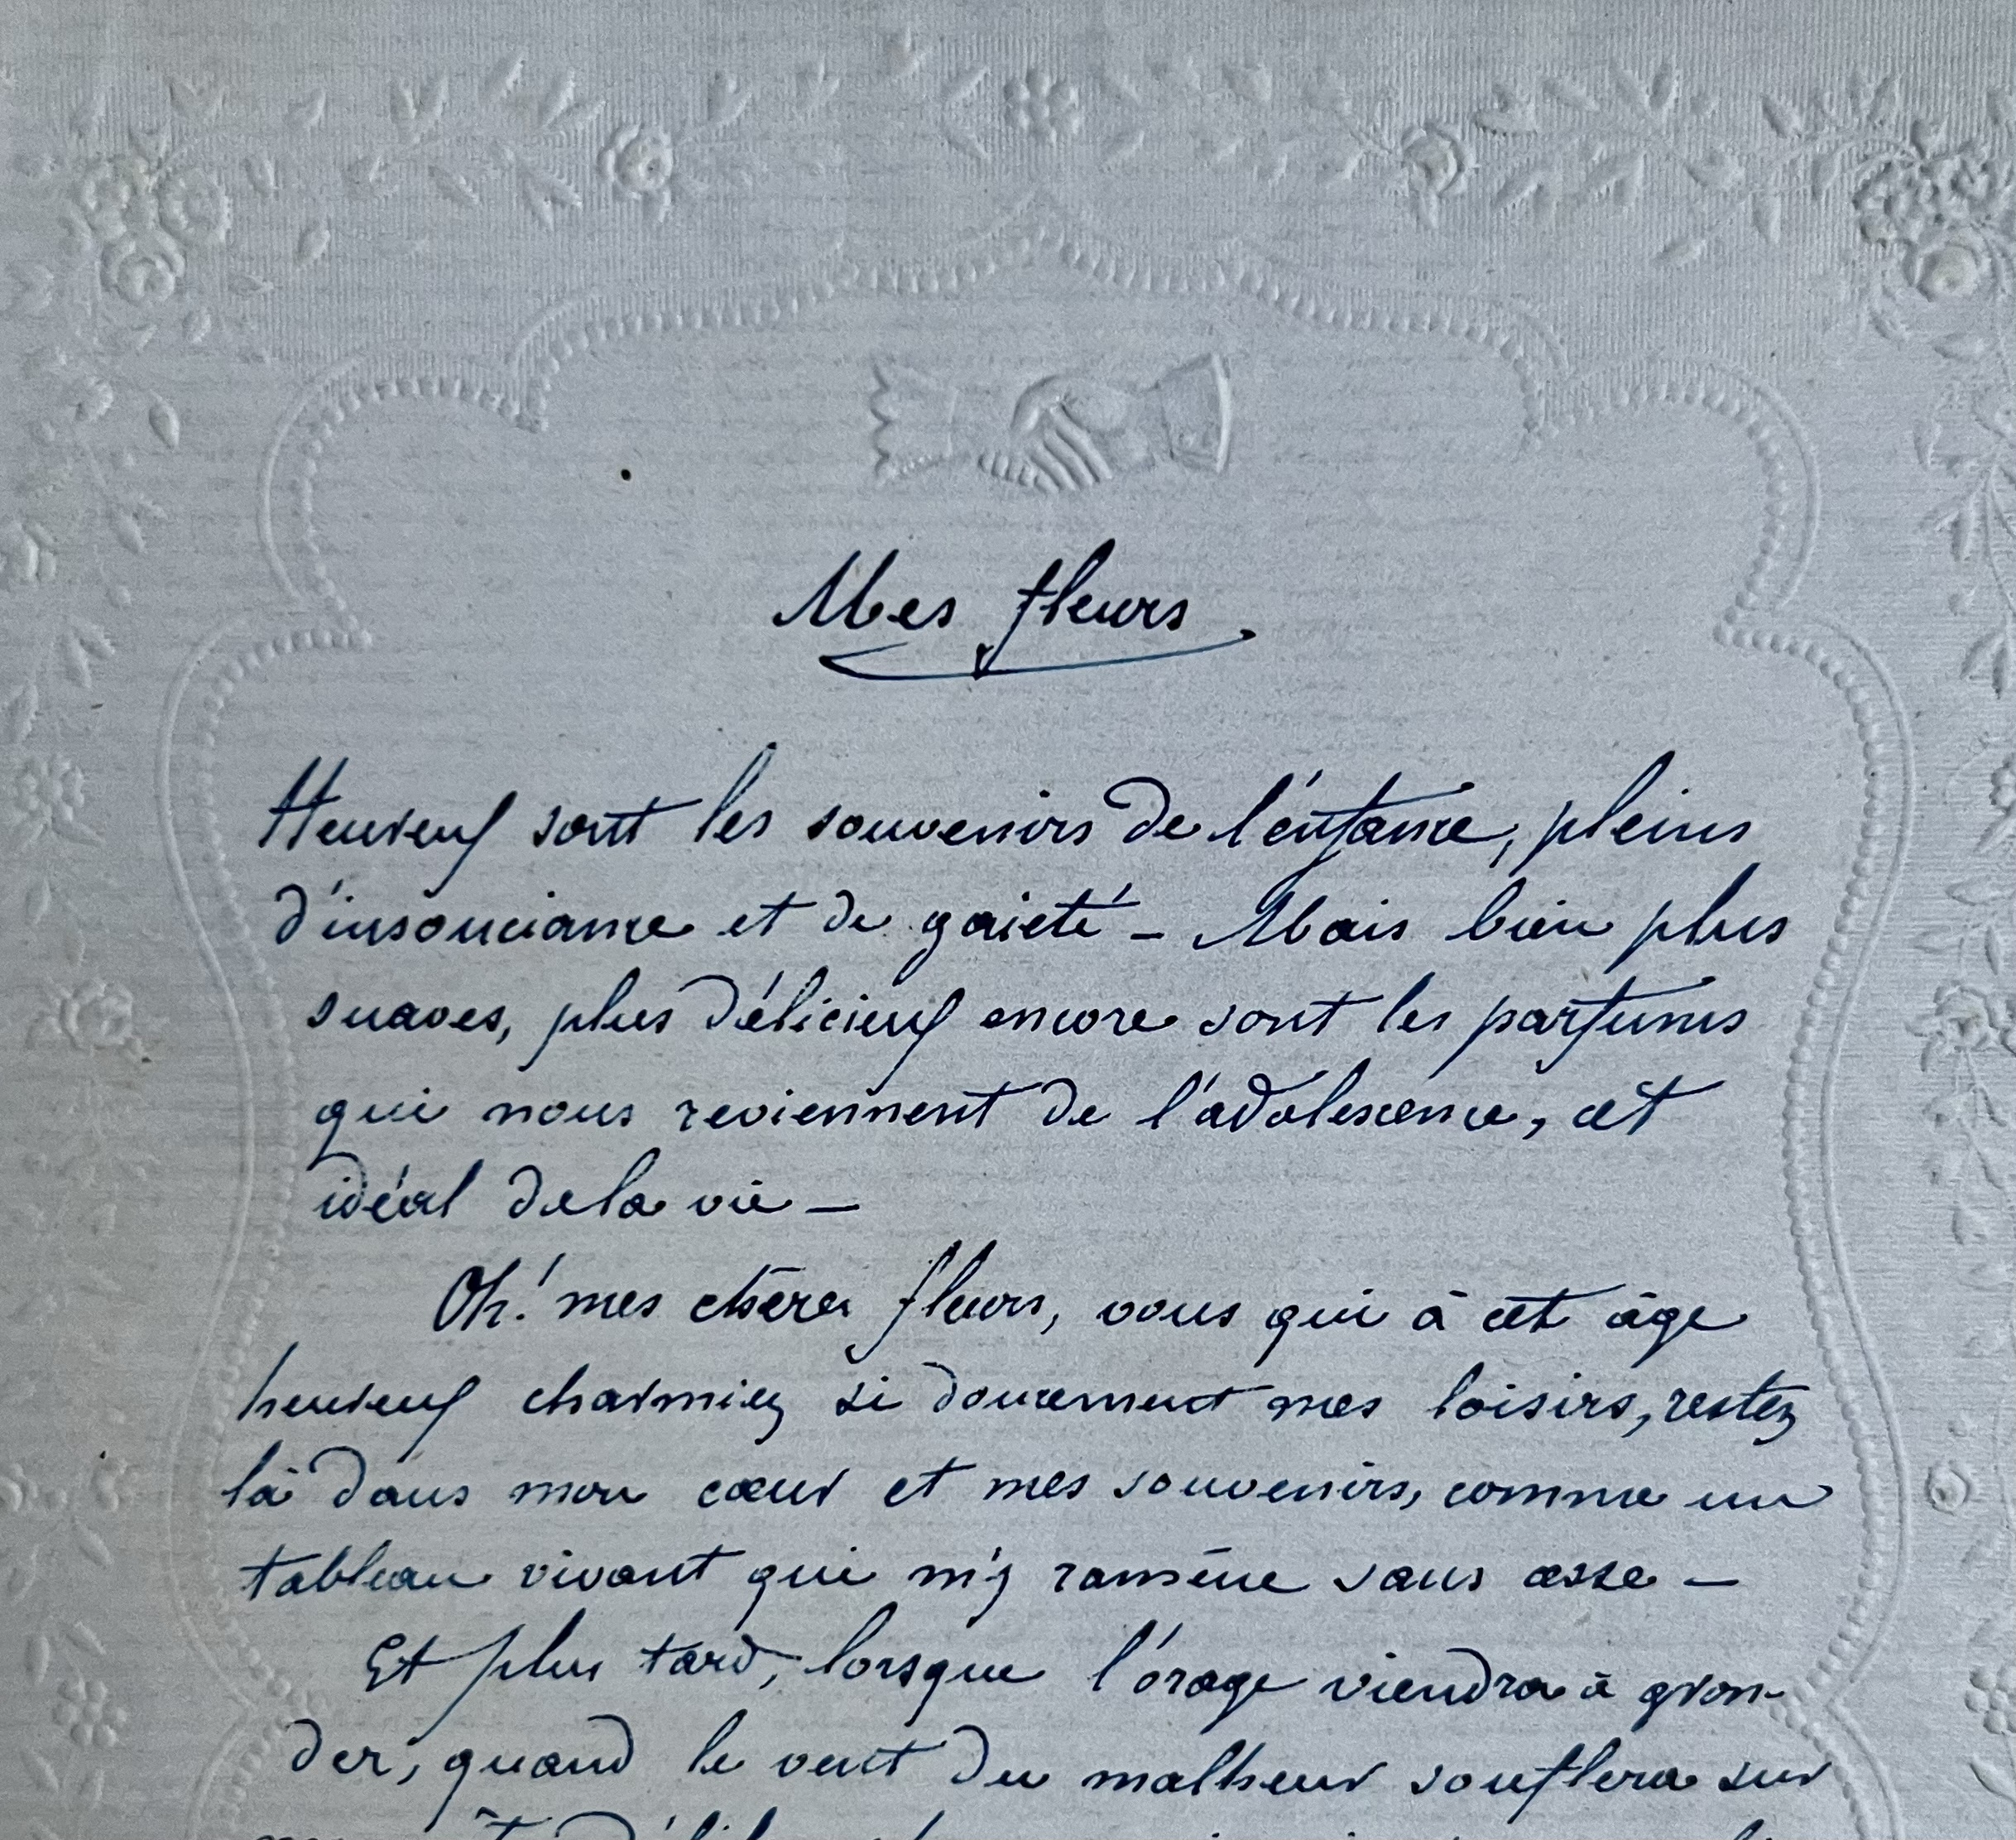 Mes fleurs
Heureux sont les souvenirs de l'enfance, pleins
d'insouciance et de gaieté – Mais bien plus
suaves, plus délicieux encore sont les parfums
qui nous reviennent de l'adolescence, cet
idéal de la vie –
Oh! mes chères fleurs, vous qui à cet âge
heureux charmiez si doucement mes loisirs, restez
là dans mon cœur et mes souvenirs, comme un
tableau vivant qui m'y ramène sans cesse –
Et plus tard, lorsque l'orage viendra à gron-
der, quand le vent du malheur soufflera sur